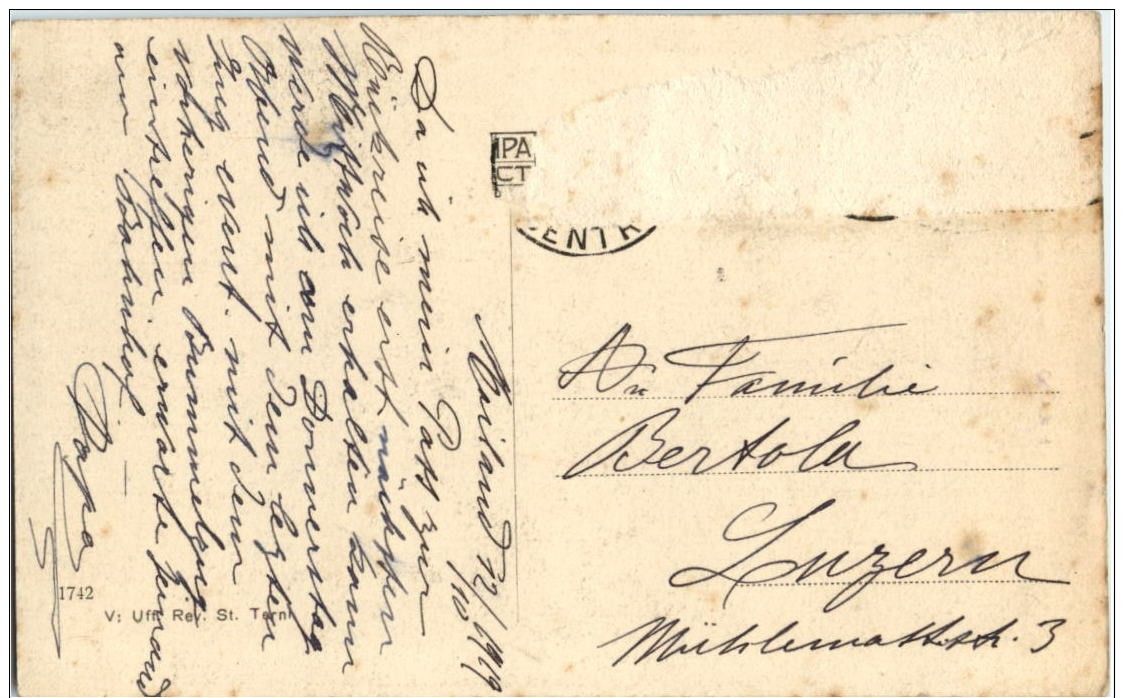 Mailand 12/10 1919
Da ich mein Pass zur
Rückreise erst nächsten
Mittwoch erhalten kann
werde ich am Donnerstag
Abend mit dem lezten
Zug event. mit dem
vohtrigen Bummelzug
eintreffen erwarte jemand
am Bahnhof. —
Papa
1742
V: Uff. Rev. St. Terni
IPA
CT
CENTR
An Familie
Bertola
Luzern
Mühlemattstr. 3